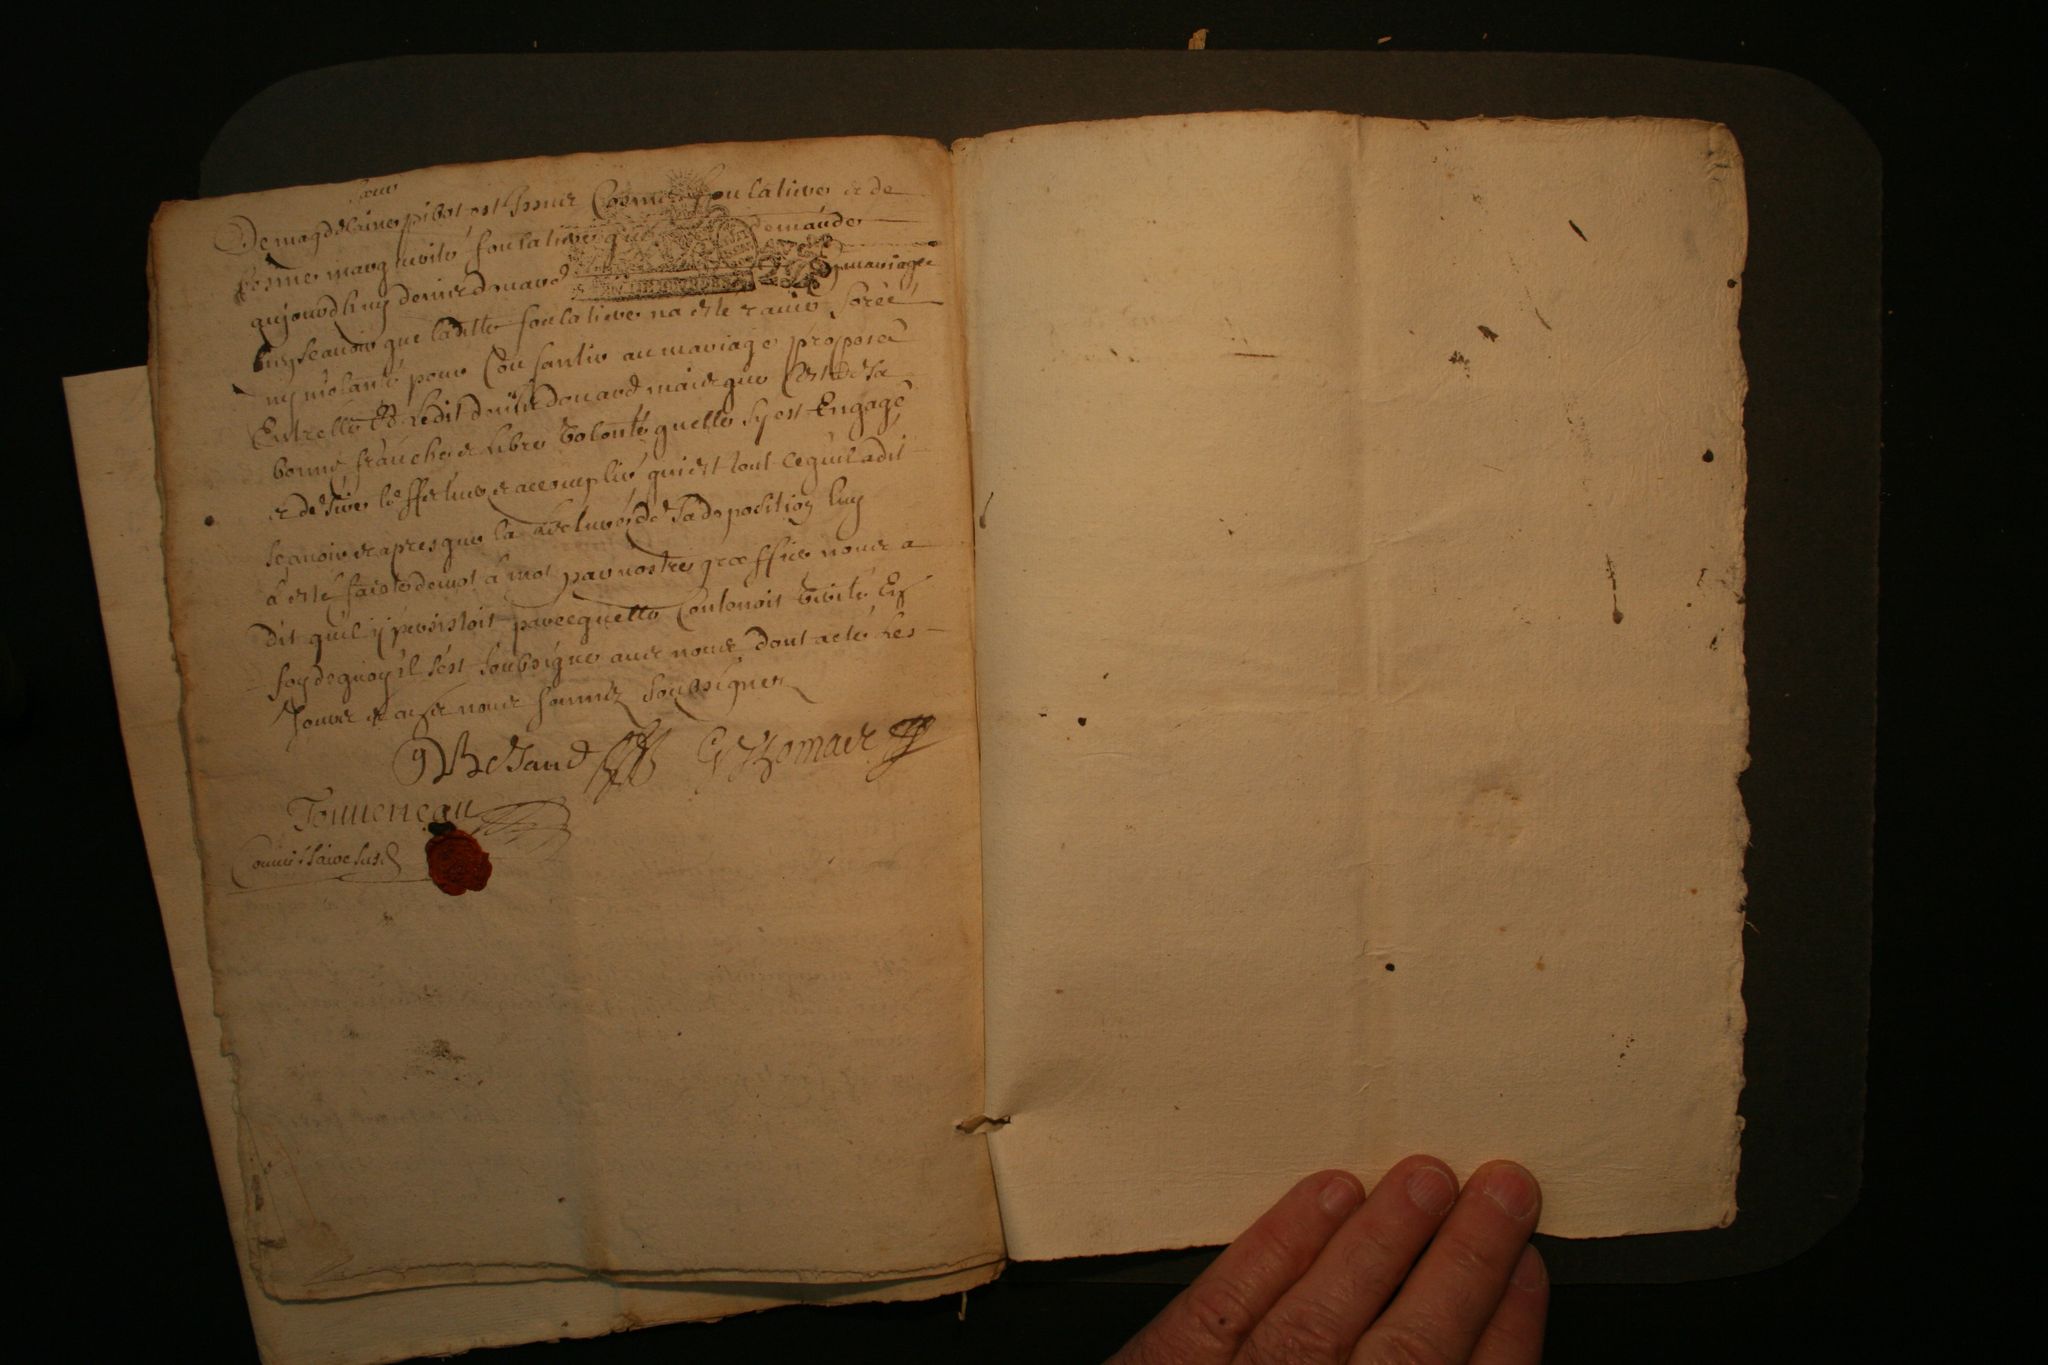 sœur
De magdelaine pibot est yssue Cosme foulatier et de
Cosme marguerite foulatiere que demande
aujourdhuy denis douard mariage
luy scauoir que ladite foulatiere na esté rauie forcée
ny viólantée pour Consantir au mariage proposed
Entrelle Et Ledit denis douard mais que Cest de sa
bonne franche et Libre volonté quelle sy est Engagé
et desire leffectuer et accomplir qui est tout ce quil a dit
scauoir et apres que la Lecture de sa deposition luy
à esté faicte de mot à mot par nostre greffier nous a
dit quil y persistoit parcequelle Contenoit verité En
foy de quoy il sest soubsigné auec nous dont acte Les
Jours et an et nous sommes soubsignez
Besaud G Thomas
Touueneau
Commissaire susd